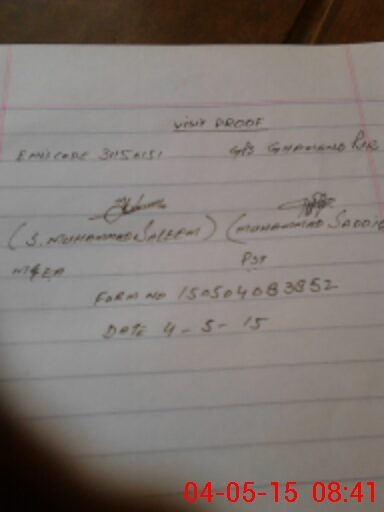 Visit PROOF
EMISCODE 31150151 G/S GHAMAND PUR
(S. MUHAMMAD SALEEM) (MUHAMMAD SADDIQ
M&EA PST
FORM NO 150504083852
DATE 4-5-15
04-05-15 08:41